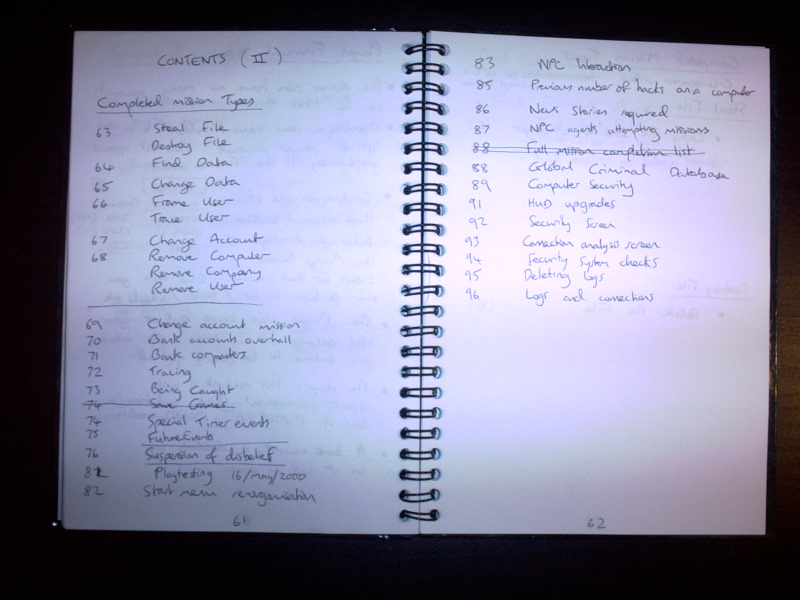 CONTENTS (II)
Completed mission Types
63 Steal File
Destroy File
64 Find Data
65 Change Data
66 Frame User
Trace User
67 Change Account
68 Remove Computer
Remove Company
Remove User
69 Change account mission
70 Bank accounts overhall
71 Bank computers
72 Tracing
73 Being Caught
74 Save Games
74 Special Timer events
75 Future Events
76 Suspension of disbelief
81 Playtesting 16/may/2000
82 Start menu reorganisation
61
83 NPC Interaction
85 Previous number of hacks on a computer
86 News Stories required
87 NPC agents attempting missions
88 Full mission completion list
88 Global Criminal Database
89 Computer Security
91 HUD upgrades
92 Security Screen
93 Connection analysis screen
94 Security System checks
95 Deleting logs
96 Logs and connections
62